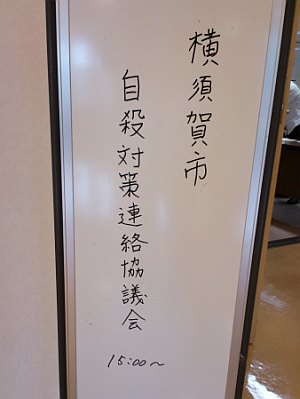 横須賀市
自殺対策連絡協議会
15:00～